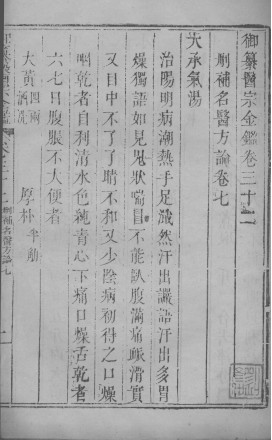 御纂醫宗金鑑卷三十二
刪補名醫方論卷七
大承氣湯
治陽明病潮熱手足濈然汗出譫語汗出多胃
燥獨語如見鬼狀喘冒不能臥腹滿痛脈滑實
又目中不了了睛不和又少陰病初得之口燥
咽乾者自利清水色純青心下痛口燥舌乾者
六七日腹脹不大便者
大黃四兩酒洗 厚朴半觔